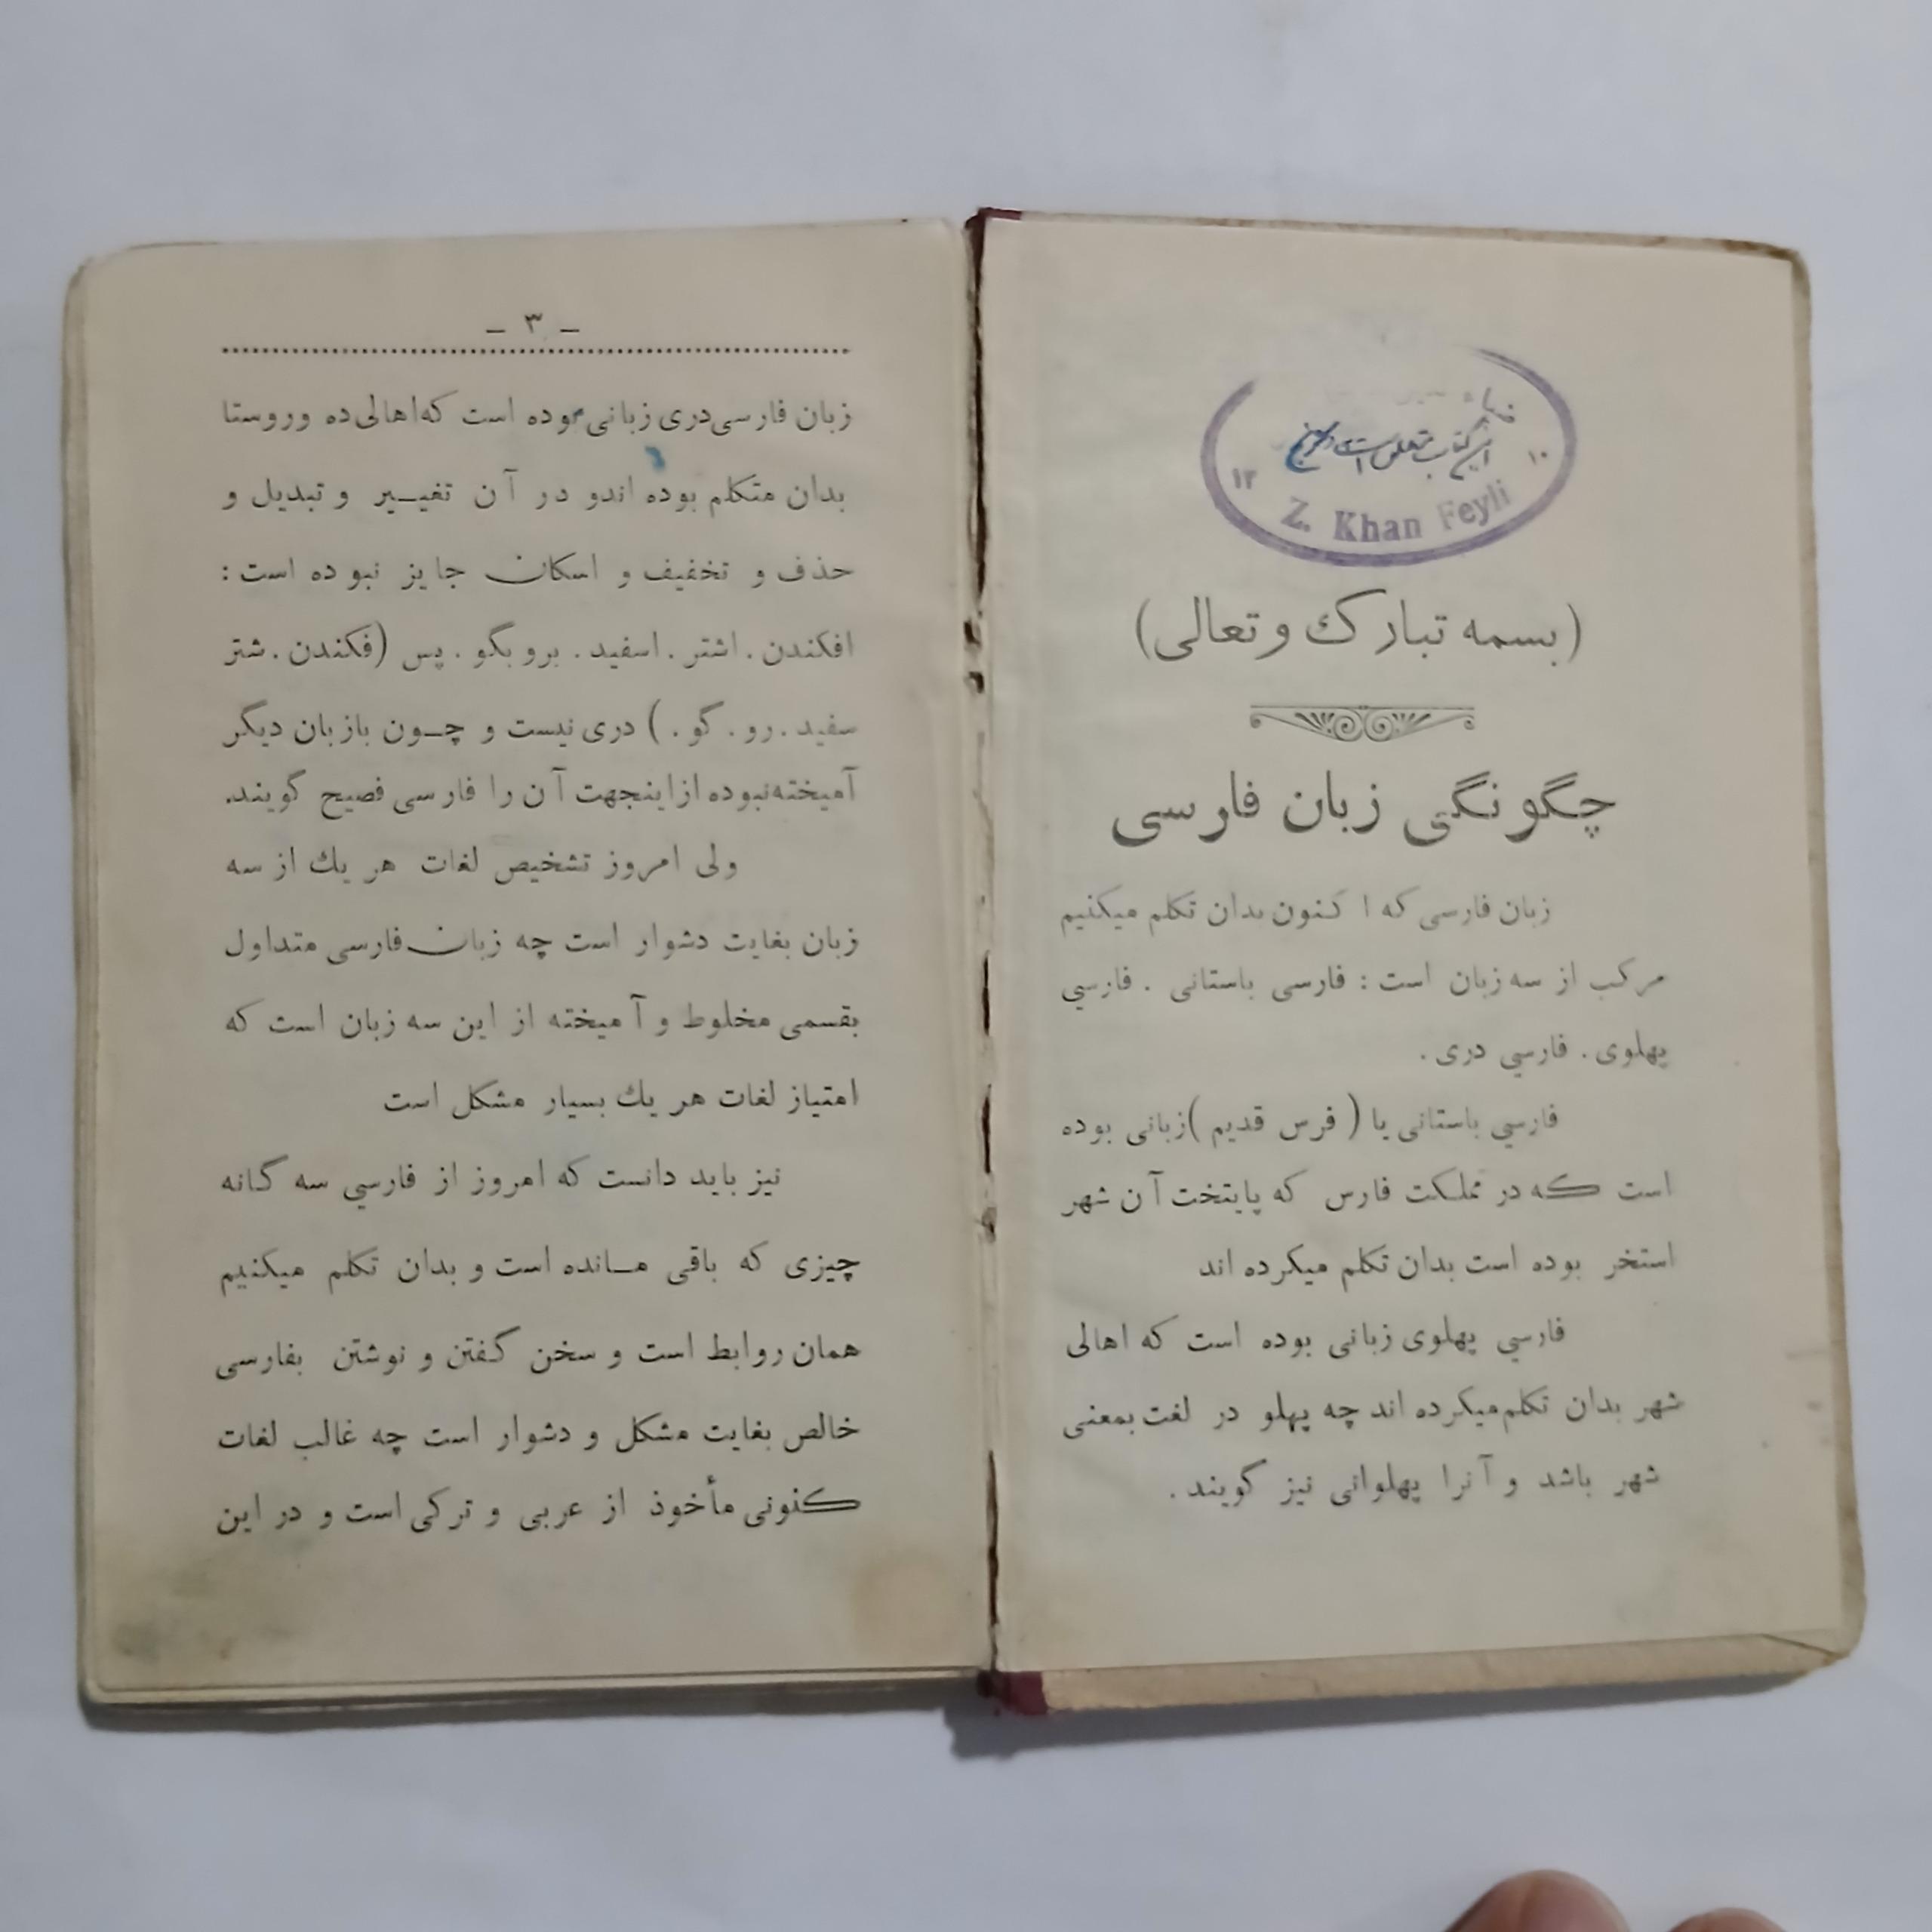 این کتاب متعلق است
۱۳ ۱۰
Z. Khan Feyli
(بسمه تبارك و تعالی)
چگونگی زبان فارسی
زبان فارسی که ا کنون بدان تکلم میکنیم
مرکب از سه زبان است : فارسی باستانی . فارسي
پهلوی . فارسي دری .
فارسي باستانی یا ( فرس قدیم )زبانی بوده
است که در مملکت فارس که پایتخت آن شهر
استخر بوده است بدان تکلم میکرده اند
فارسي پهلوی زبانی بوده است که اهالی
شهر بدان تکلم میکرده اند چه پهلو در لغت بمعنی
شهر باشد و آنرا پهلوانی نیز گویند .
– ۳ –
زبان فارسی دری زبانی بوده است که اهالی ده وروستا
بدان متکلم بوده اندو در آن تغییر و تبدیل و
حذف و تخفیف و اسکان جایز نبوده است :
افکندن . اشتر . اسفید . برو بگو . پس (فکندن . شتر
سفید . رو . گو . ) دری نیست و چون بازبان دیگر
آمیخته نبوده ازاینجهت آن را فارسی فصیح گویند.
ولی امروز تشخیص لغات هر یك از سه
زبان بغایت دشوار است چه زبان فارسی متداول
بقسمی مخلوط و آمیخته از این سه زبان است که
امتیاز لغات هر یك بسیار مشکل است
نیز باید دانست که امروز از فارسي سه گانه
چیزی که باقی مانده است و بدان تکلم میکنیم
همان روابط است و سخن گفتن و نوشتن بفارسی
خالص بغایت مشکل و دشوار است چه غالب لغات
کنونی مأخوذ از عربی و ترکی است و در این